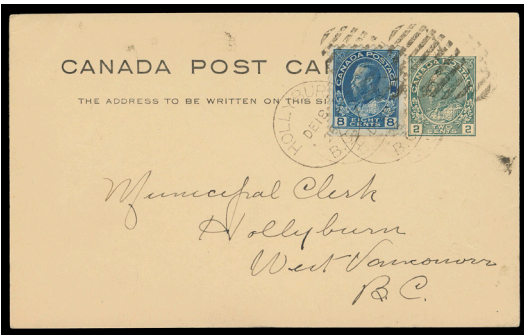 CANADA POST CA
THE ADDRESS TO BE WRITTEN ON THIS SI
CANADA POSTAGE
8 EIGHT CENTS 8
2 TWO CENTS 2
HOLLYBUR
DE 18
B.
Municipal Clerk
Hollyburn
West Vancouver
B.C.